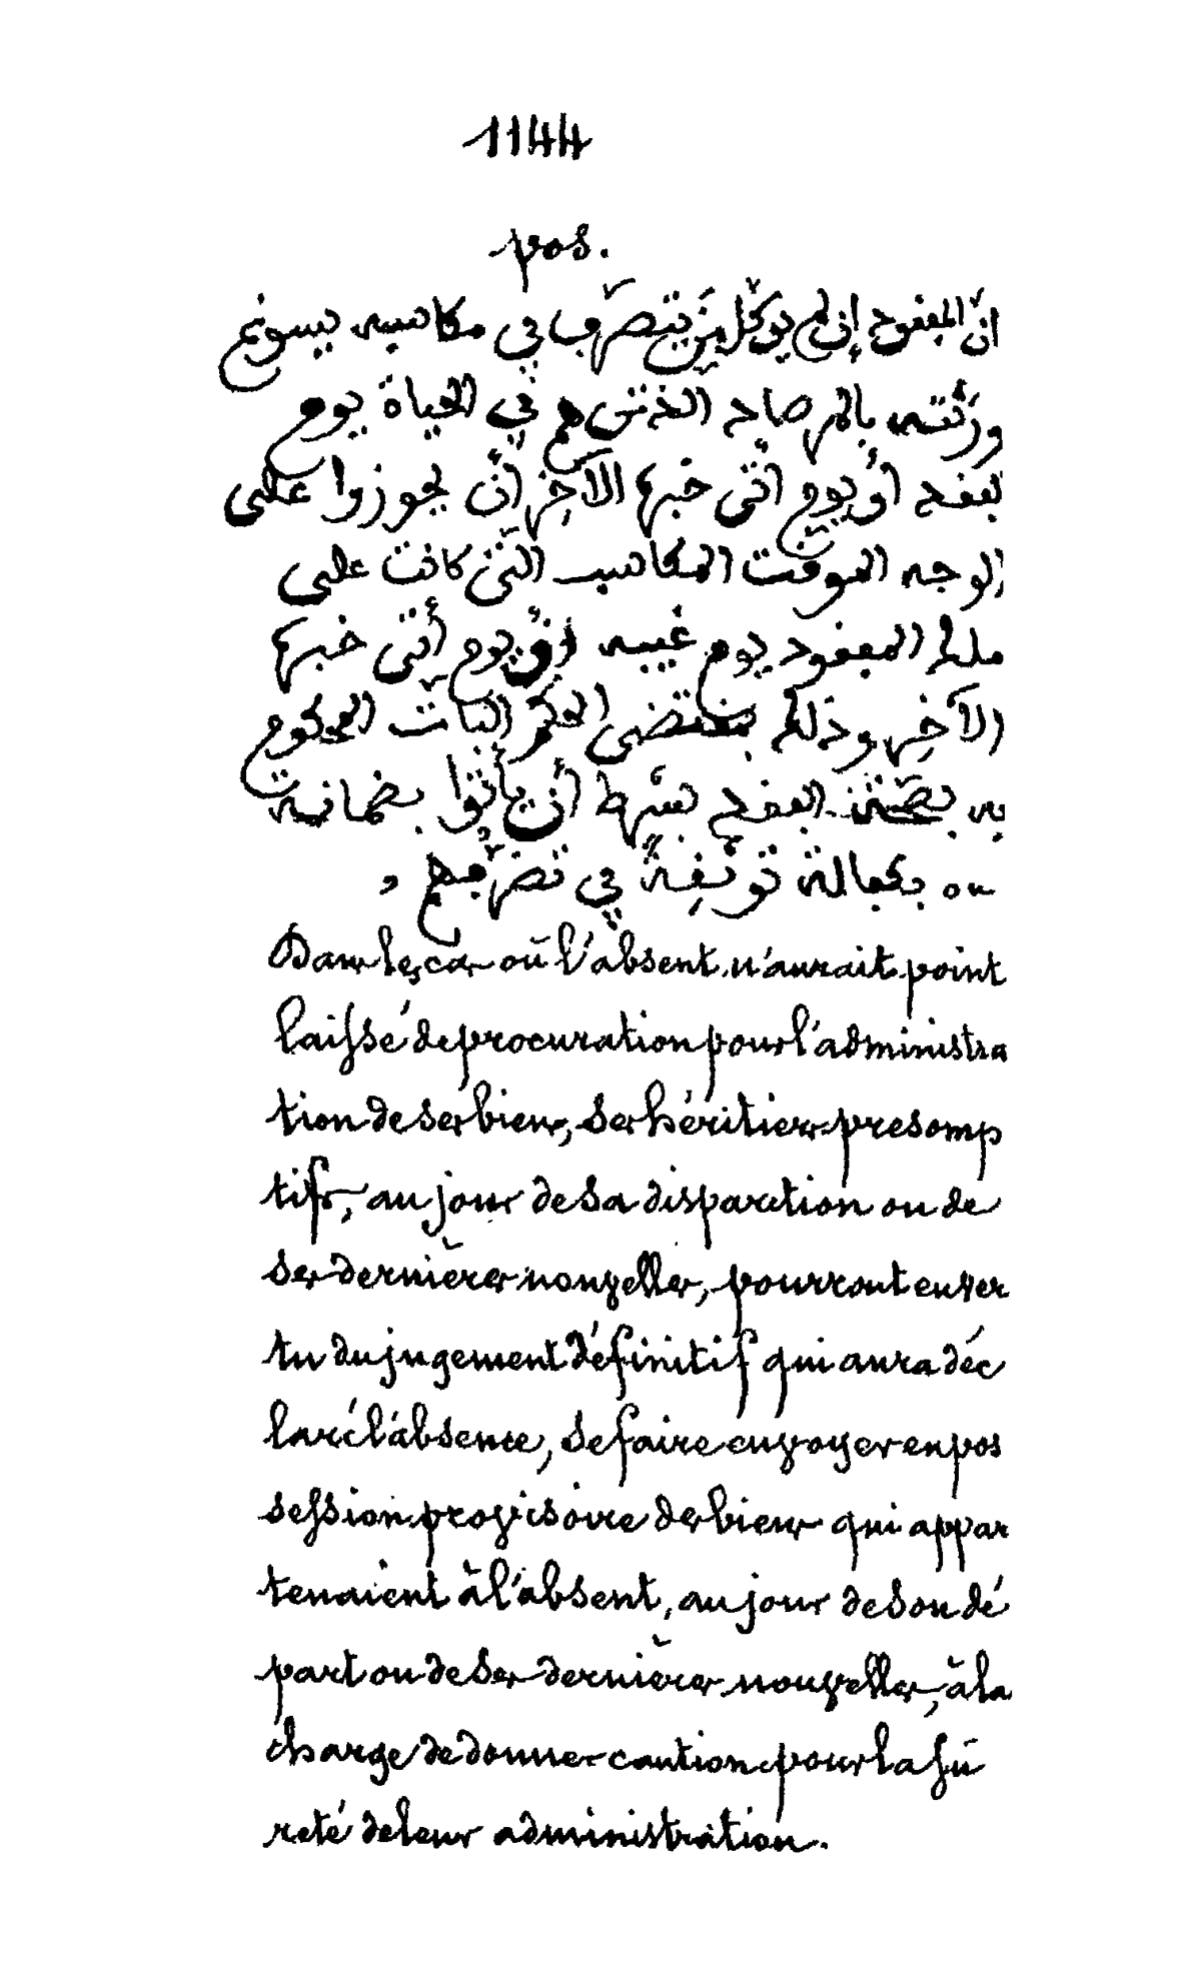 1144
pos.
انّ المفقود إن لم يوكّل من يتصرّف في مكاسبه يسوغ
ورثته بالمرصاد الذين هم في الحياة يوم
بفقد أو يوم أتى خبرها الآخر أن يحوزوا على
الوجه الموقت المكاسب التي كانت على
ملك المفقود يوم غيبه أو يوم أتى خبرها
الآخر وذلك بمقتضى الحكم البات المحكوم
به الفقد بشرط أن يأتوا بضمانة
ou بكفالة توثقة في تصرّفهم
Dans les cas où l'absent n'aurait point
laissé de procuration pour l'administra
tion de ses biens, ses héritiers presomp
tifs, au jour de sa disparition ou de
ses dernières nouvelles, pourront en ver
tu du jugement définitif qui aura déc
laré l'absence, se faire envoyer en pos
session provisoire des biens qui appar
tenaient à l'absent, au jour de son dé
part ou de ses dernières nouvelles, à la
charge de donner caution pour la sû
reté de leur administration.